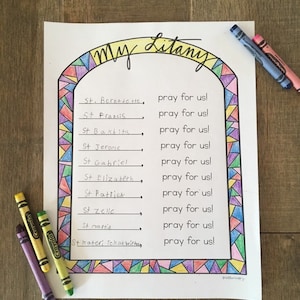 My Litany
St. Bernadette, pray for us!
St Francis, pray for us!
St Bakhita, pray for us!
St Jerome, pray for us!
St Gabriel, pray for us!
St Elizabeth, pray for us!
St Patrick, pray for us!
St Zelie, pray for us!
pray for us!
St Kateri Tekakwitha, pray for us!
Crayola